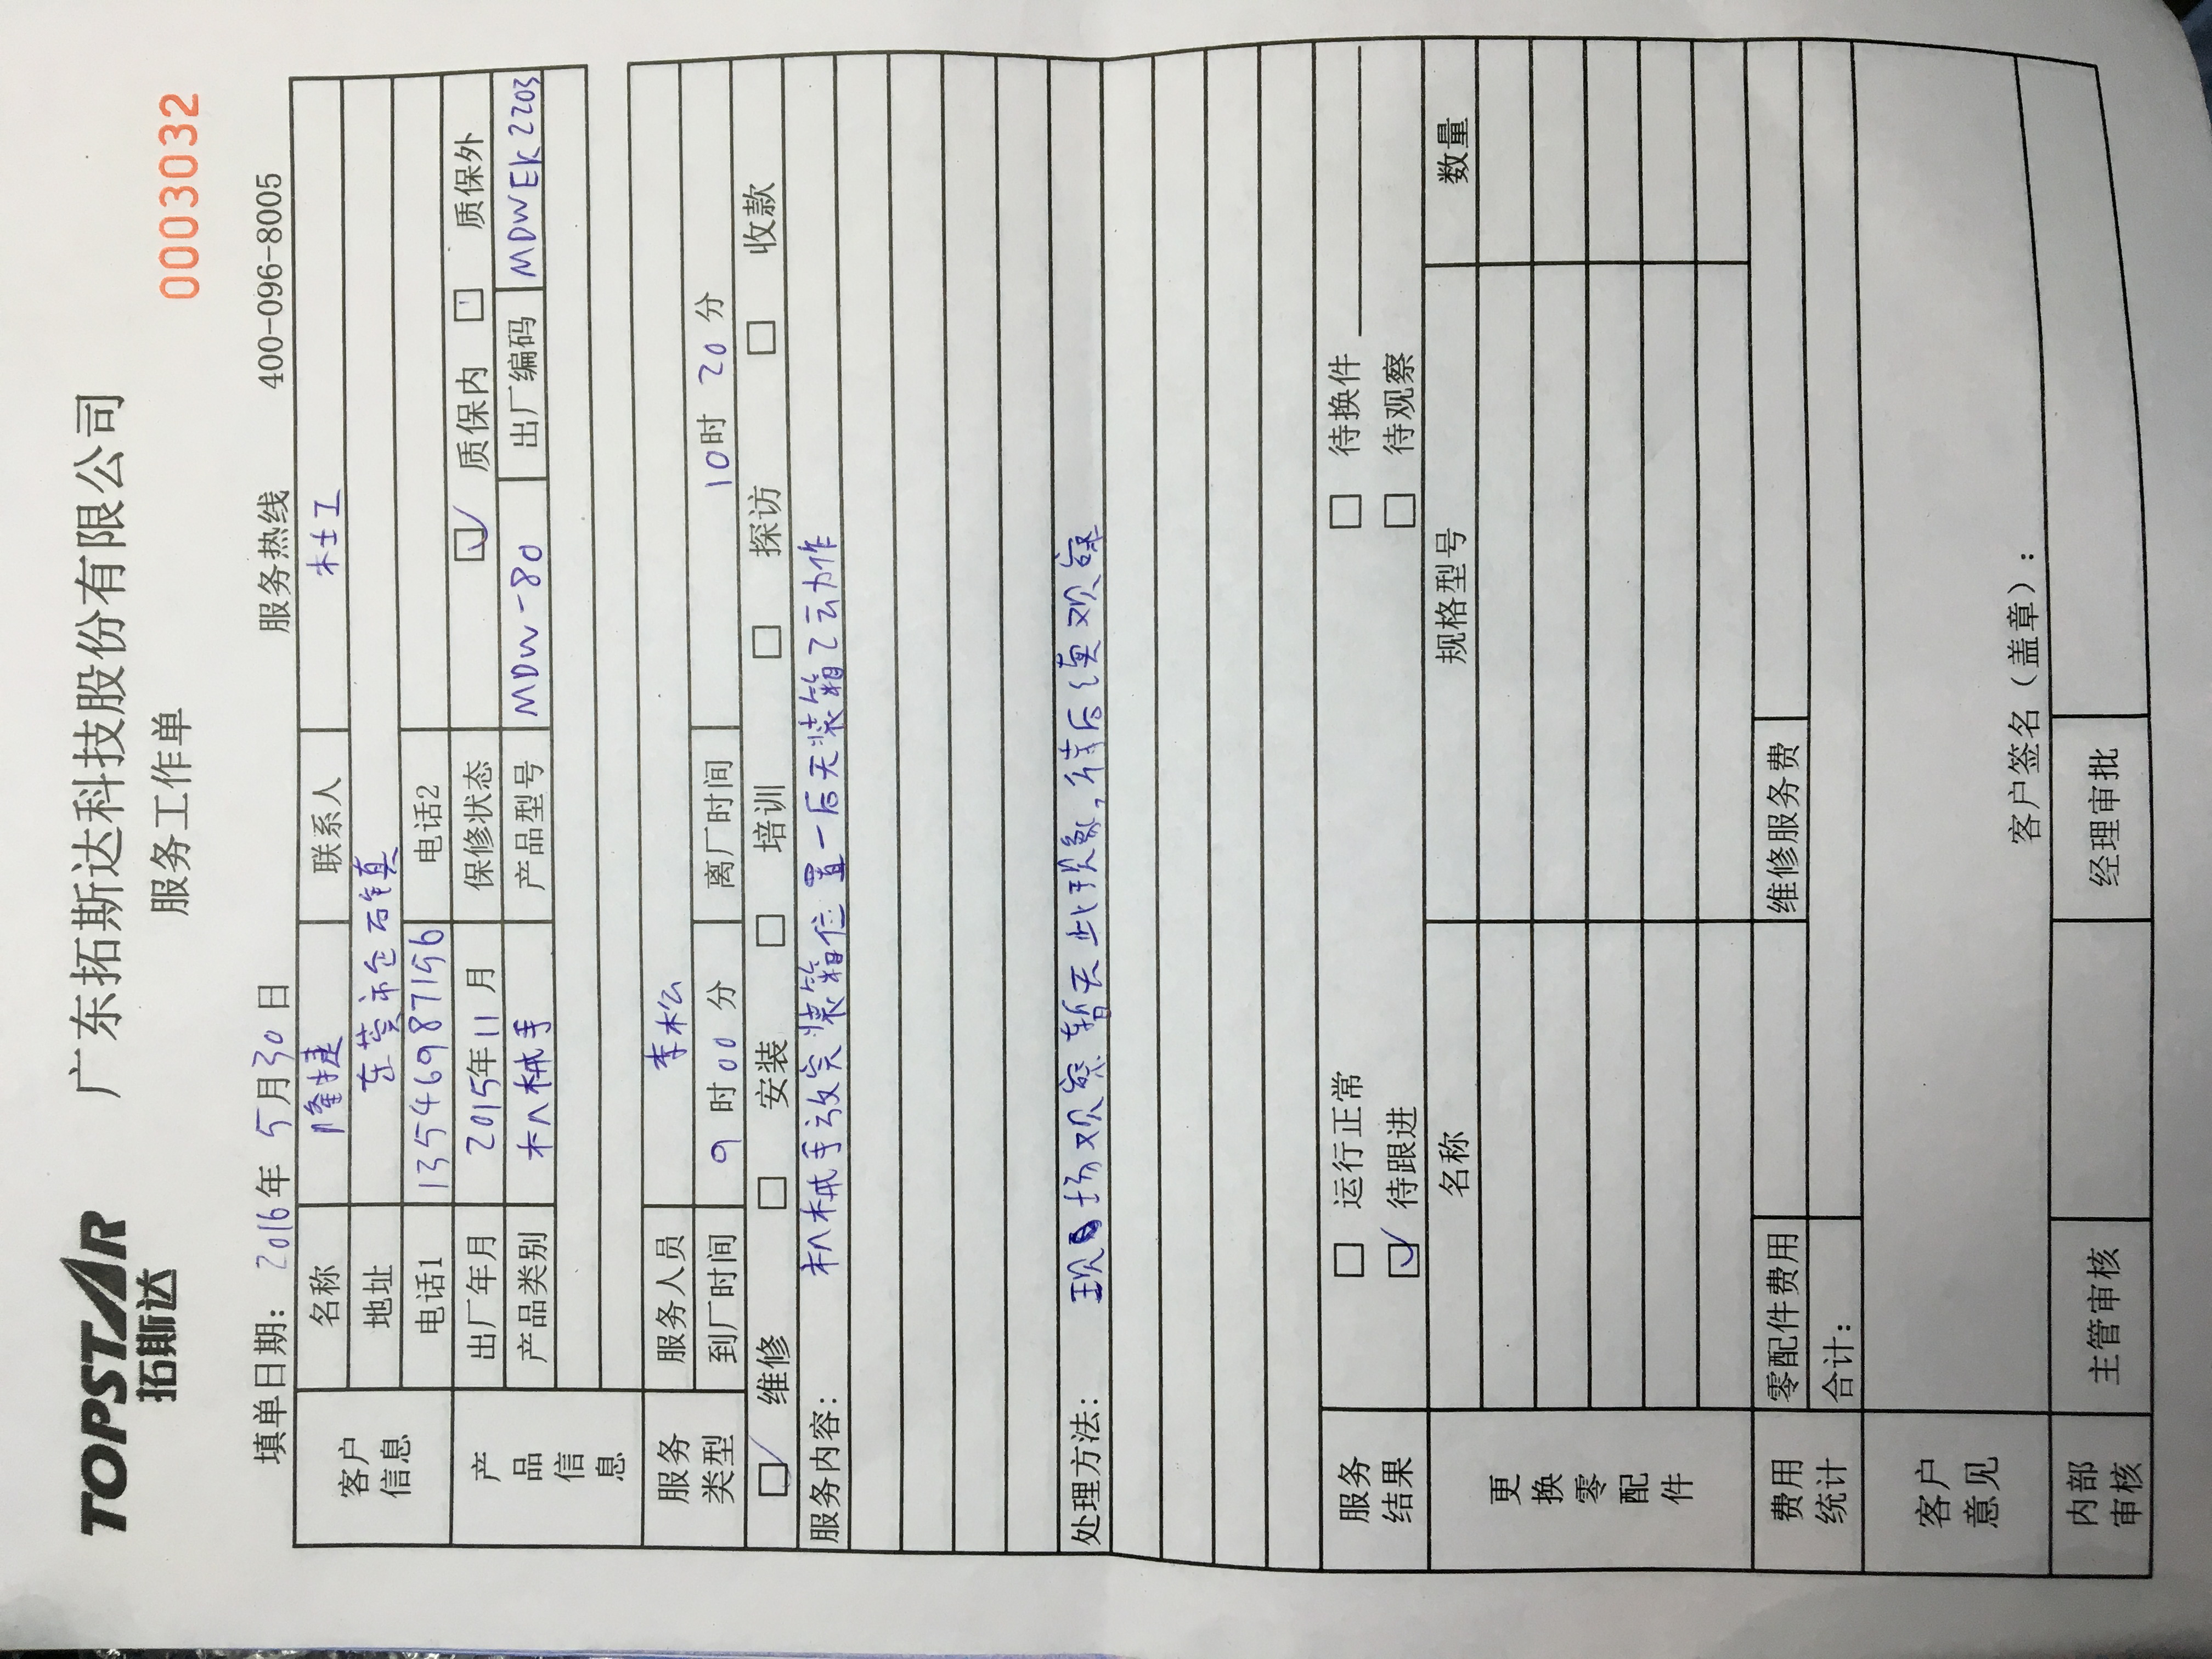 TOPSTAR
拓斯达
广东拓斯达科技股份有限公司
服务工作单
0003032
填单日期: 2016年 5月30日
服务热线 400-096-8005
客户信息
名称 隆捷 联系人 杜工
地址 东莞市企石镇
电话1 13546987156 电话2
产品信息
出厂年月 2015年11月 保修状态 ☑ 质保内 □ 质保外
产品类别 机械手 产品型号 MDW-80 出厂编码 MDWEK2203
服务类型
服务人员 李松
到厂时间 9时00分 离厂时间 10时20分
☑ 维修 □ 安装 □ 培训 □ 探访 □ 收款
服务内容: 机械手放完装箱位置一后无装箱乙动作
处理方法: 现场观察暂无此现象,待后续观察
服务结果
□ 运行正常 □ 待换件
☑ 待跟进 □ 待观察
更换零配件
名称 规格型号 数量
费用统计
零配件费用 维修服务费
合计:
客户意见
客户签名(盖章):
内部审核
主管审核 经理审批